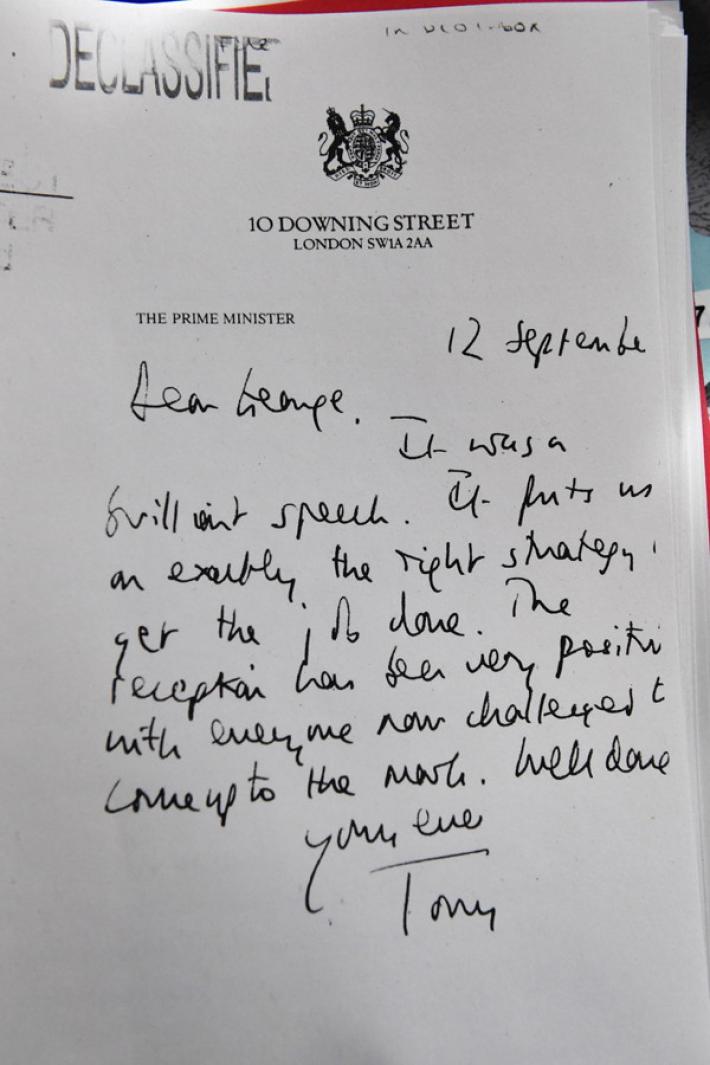 DECLASSIFIE
10 DOWNING STREET
LONDON SW1A 2AA
THE PRIME MINISTER
12 Septembe
Dear George.
It was a
brilliant speech. It puts us
on exactly the right strategy
get the job done. The
reception has been very positiv
with everyone now challenged t
come up to the mark. Well done
yours ever
Tony
7